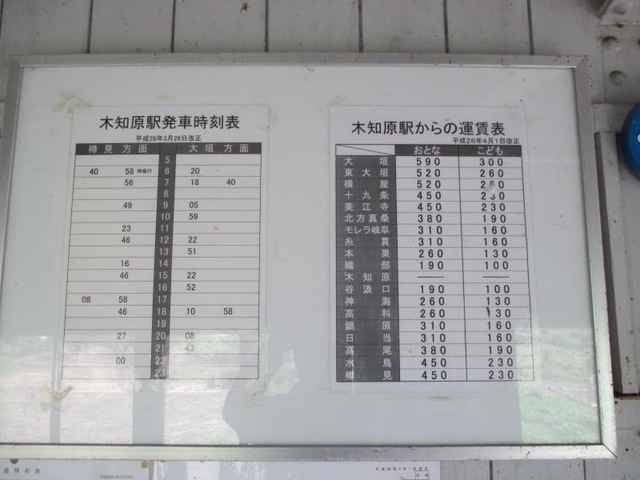 木知原駅発車時刻表
平成28年3月26日改正
樽見方面 大垣方面
5
40 58 神海行 6 20
56 7 18 40
8
49 9 05
10 59
23 11
46 12 22
13 51
16 14
46 15 22
16 52
08 58 17
46 18 10 58
19
27 20 08
21 43
00 22
23
木知原駅からの運賃表
平成26年4月1日改正
おとな こども
大垣 590 300
東大垣 520 260
横屋 520 260
十九条 450 230
美江寺 450 230
北方真桑 380 190
モレラ岐阜 310 160
糸貫 310 160
本巣 260 130
織部 190 100
木知原 ―― ――
谷汲口 190 100
神海 260 130
高科 260 130
鍋原 310 160
日当 310 160
高尾 380 190
水鳥 450 230
樽見 450 230